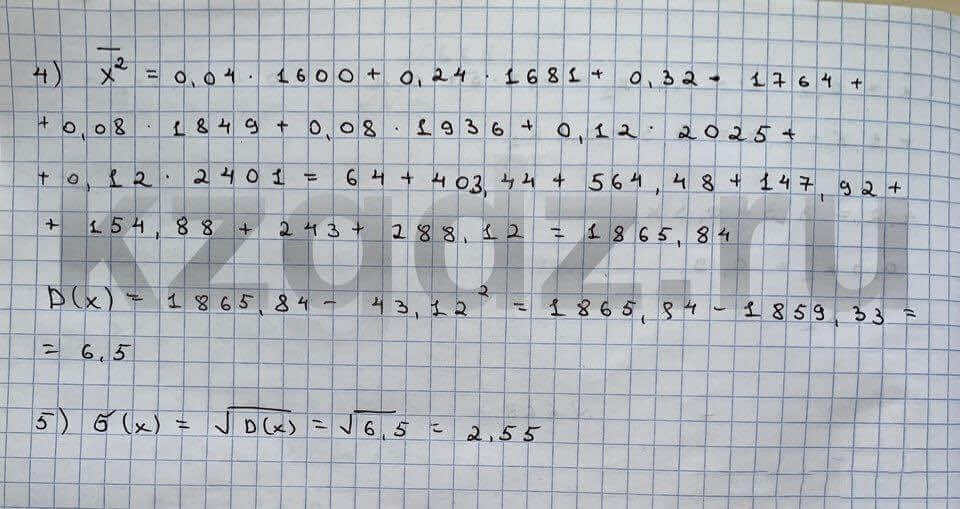 4) x̅² = 0,04 · 1600 + 0,24 · 1681 + 0,32 · 1764 +
+ 0,08 · 1849 + 0,08 · 1936 + 0,12 · 2025 +
+ 0,12 · 2401 = 64 + 403,44 + 564,48 + 147,92 +
+ 154,88 + 243 + 288,12 = 1865,84
kzgdz.ru
D(x) = 1865,84 - 43,12² = 1865,84 - 1859,33 =
= 6,5
5) σ(x) = √D(x) = √6,5 = 2,55